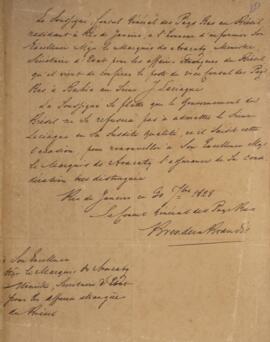 Le Soussigné Consul Général des Pays Bas au Brésil
résidant à Rio de Janeiro, a l'honneur d'informer Son
Excellence Mgr le Marquis de Aracaty Ministre
Secrétaire d'Etat pour les affaires Etrangères du Brésil
qu'il vient de conférer le poste de vice Consul des Pays
Bas à Bahia au Sieur J.
Le Soussigné se flatte que le Gouvernement du
Brésil ne se refusera pas à admettre le Sieur
en Sa Susdite qualité, et il Saisit cette
occasion, pour renouveller à Son Excellence Mgr
le Marquis de Aracaty l'assurance de Sa con
sidération très distinguée
Rio de Janeiro ce 20 1828
Le Consul Général des Pays Bas
Son Excellence
Mgr le Marquis de Aracaty
Ministre, Secrétaire d'Etat
pour les affaires étrangères
du Brésil